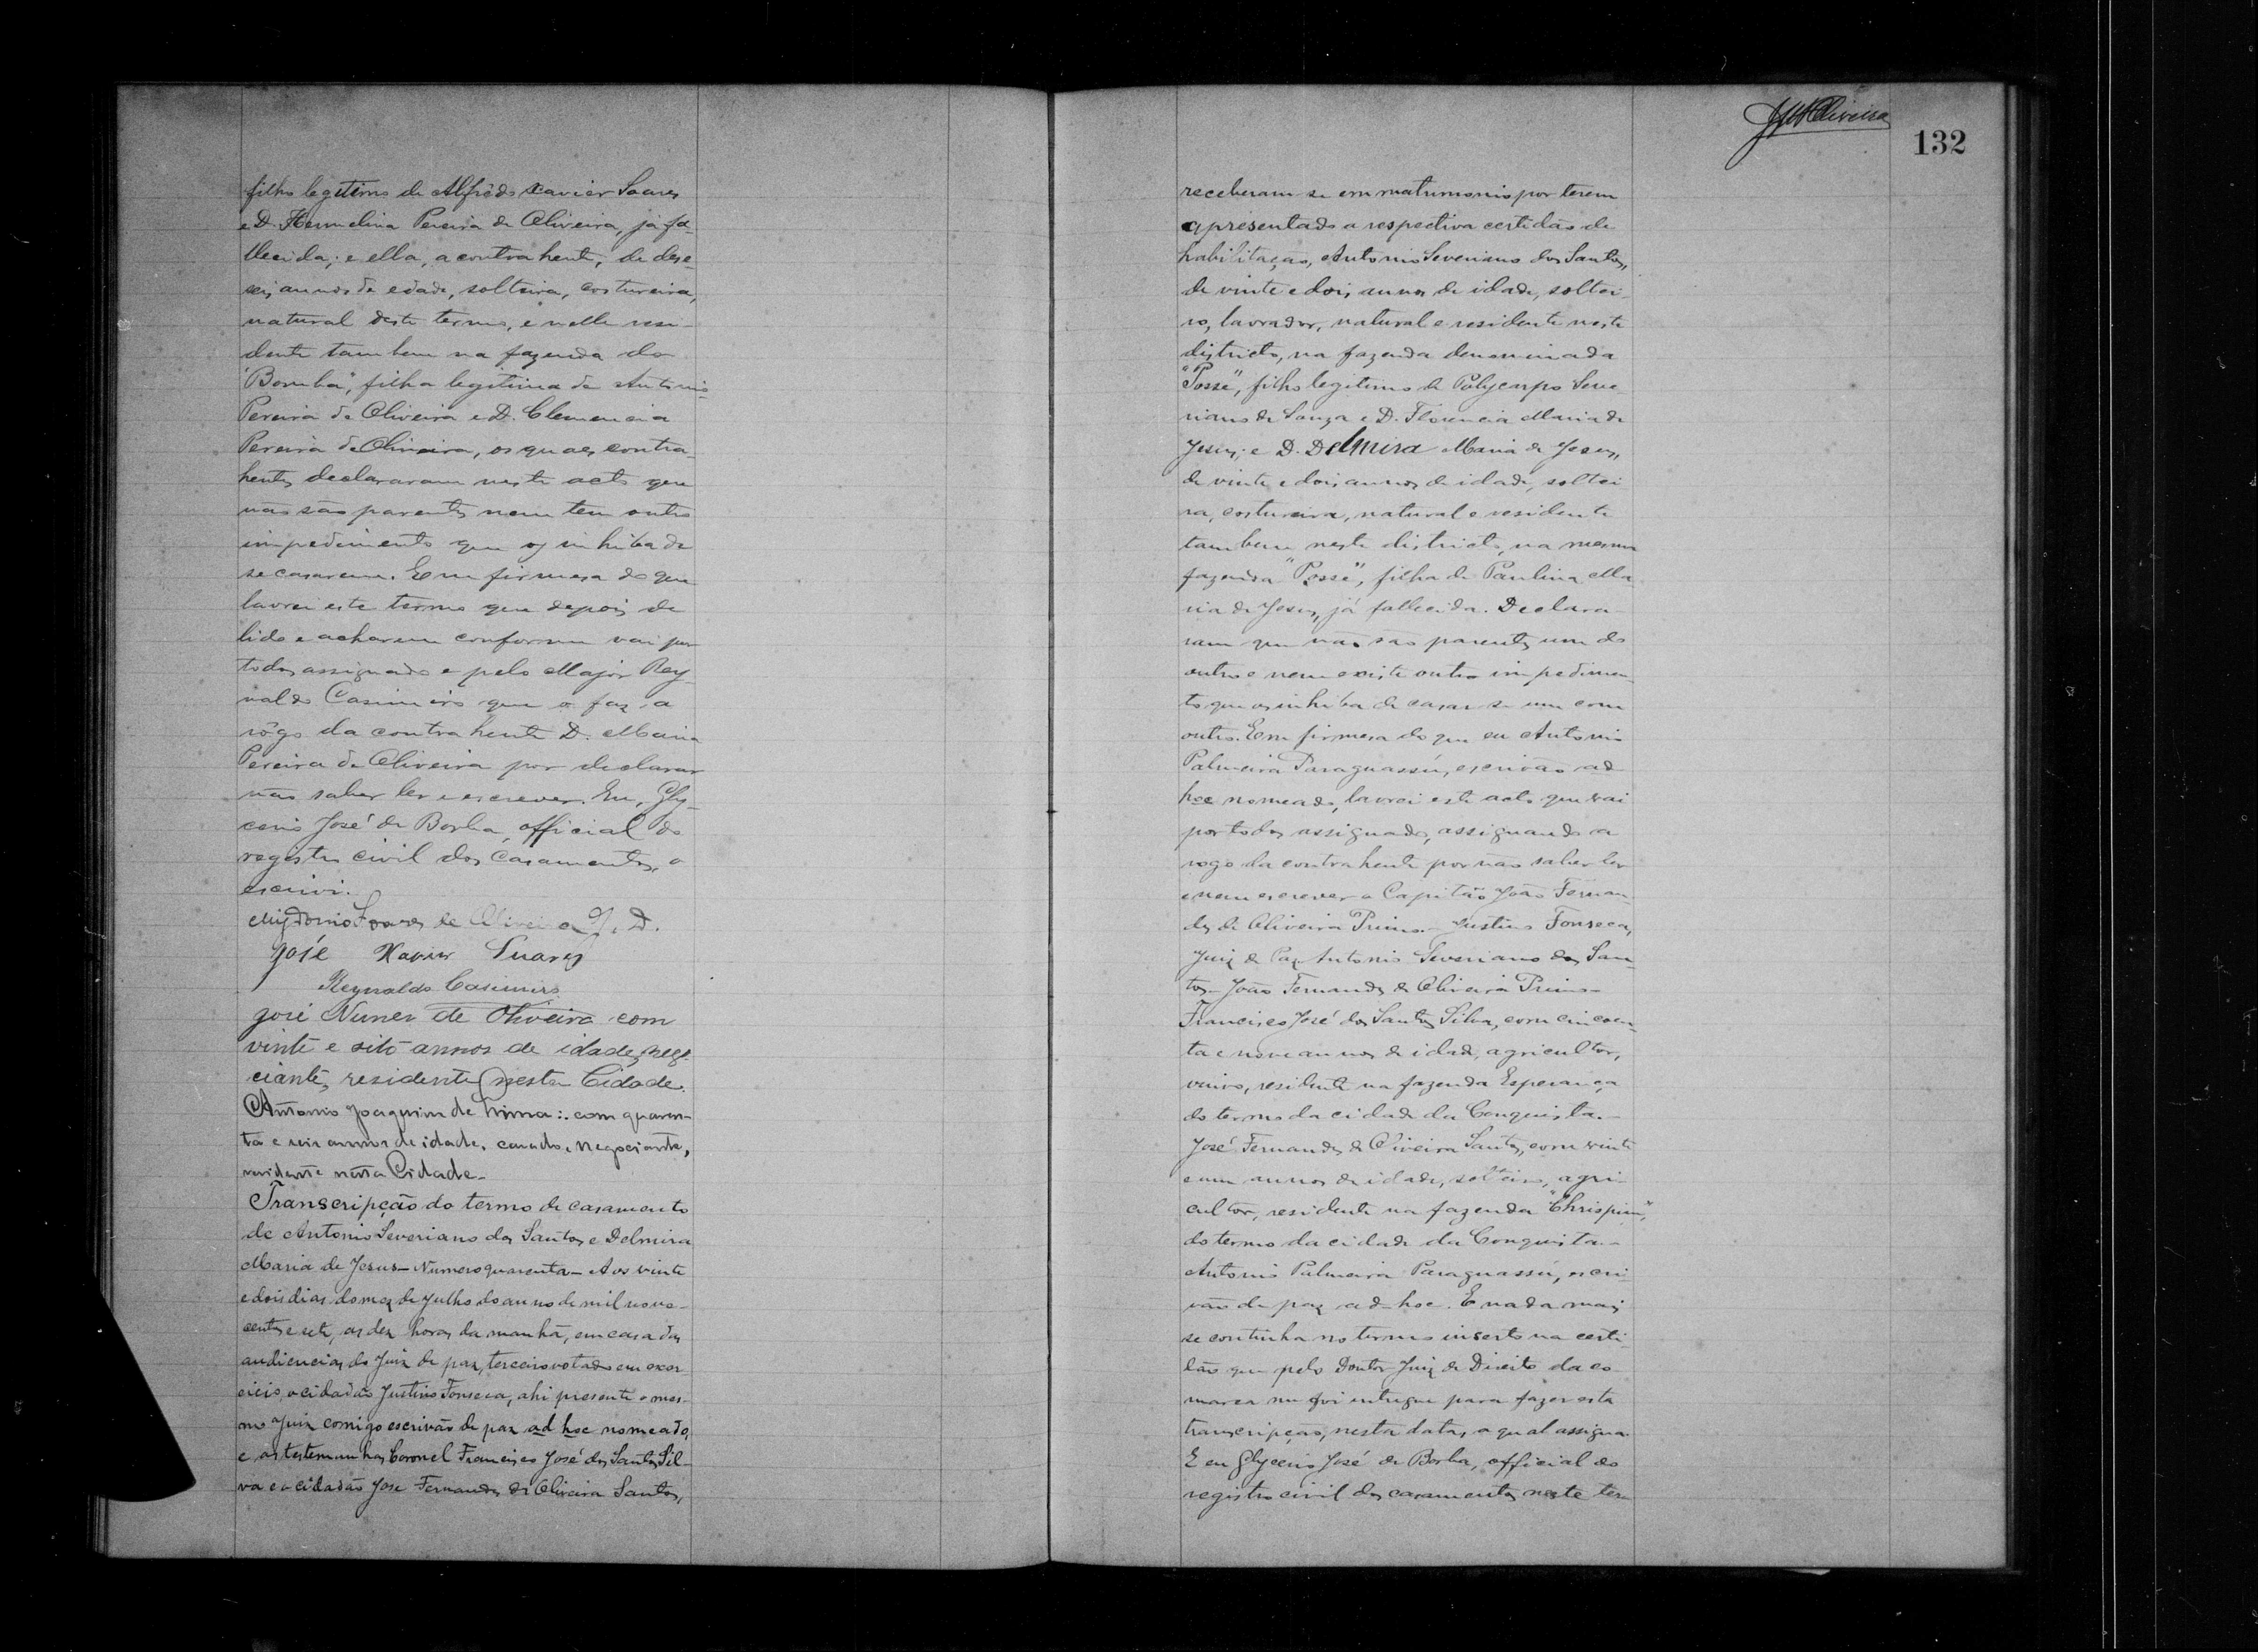 filho legitimo de Alfrêdo Xavier Soares
e D. Hermelina Pereira de Oliveira, já fa-
llecida; e ella, a contrahente, de dese-
seis annos de edade, solteira, costureira,
natural deste termo, e nelle resi-
dente tambem na fazenda da
"Bomba", filha legitima de Antonio
Pereira de Oliveira e D. Clemencia
Pereira de Oliveira, os quaes contra-
hentes declararam neste acto que
não são parentes nem tem outro
impedimento que os inhiba de
se casarem. Em firmesa do que
lavrei este termo que depois de
lido e acharem conforme vai por
todos assignado e pelo Major Rey-
naldo Casimiro que o faz a
rôgo da contrahente D. Maria
Pereira de Oliveira por declarar
não saber ler e escrever. Eu, Gly-
cerio José de Borba, official do
registro civil dos casamentos, o
escrivi.
Soares de Oliveira
José Xavier Suares
Reynaldo Casimiro
José Nunes de Oliveira com
vinte e sito annos de idade, nego
ciante, residente nesta Cidade.
Antonio Joaquim de Lima: com quaren-
ta e seis annos de idade, casado, negociante,
residente nesta Cidade-
Transcripção do termo de casamento
de Antonio Severiano dos Santos e Delmira
Maria de Jesus- Numero quarenta- Aos vinte
e dois dias do mez de Julho do anno de mil nove-
centos e sete, as dez horas da manhã, em casa das
audiencias do Juiz de paz, terceiro votado em exer-
cicio, o cidadão Justino Fonseca, ahi presente o mes-
mo Juiz comigo escrivão de paz ad hoc nomeado,
e as testemunhas Coronel Francisco José dos Santos Sil-
va e o cidadão José Fernandes de Oliveira Santos,
132
receberam se em matrimonio por terem
apresentado a respectiva certidão de
habilitação, Antonio Severiano dos Santos,
de vinte e dois annos de idade, soltei-
ro, lavrador, natural e residente neste
districto, na fazenda denominada
"Posse", filho legitimo de Polycarpo Seve-
riano de Souza e D. Florencia Maria de
Jesus; e D. Delmira Maria de Jesus,
de vinte e dois annos de idade, soltei-
ra, costureira, natural e residente
tambem neste districto, na mesma
fazenda "Posse", filha de Paulina Ma-
ria de Jesus, já fallecida. Declara-
ram que não são parentes um do
outro e nem existe outro impedimen-
to que os inhiba de casar se um com
outro. Em firmesa do que eu Antonio
Palmeira Paraguassú, escrivão ad
hoc nomeado, lavrei este acto que vai
por todos assignado, assignando a
rogo da contrahente por não saber ler
e nem escrever o Capitão João Fernan-
des de Oliveira Primo- Justino Fonseca,
Juiz de Paz- Antonio Severiano dos San-
tos- João Fernandes de Oliveira Primo-
Francisco José dos Santos Silva, com cincoen-
ta e nove annos de idade, agricultor,
viuvo, residente na fazenda Esperança
do termo da cidade da Conquista.-
José Fernandes de Oliveira Santos, com vinte
e um annos de idade, solteiro, agri-
cultor, residente na fazenda "Chrispim",
do termo da cidade da Conquista.-
Antonio Palmeira Paraguassú, escri-
vão de paz ad-hoc. E nada mais
se continha no termo inserto na certi-
dão que pelo Doutor Juiz de Direito da co-
marca me foi entregue para fazer esta
transcripção, nesta data, a qual assigna.
E eu Glycerio José de Borba, official do
registro civil dos casamentos neste ter-